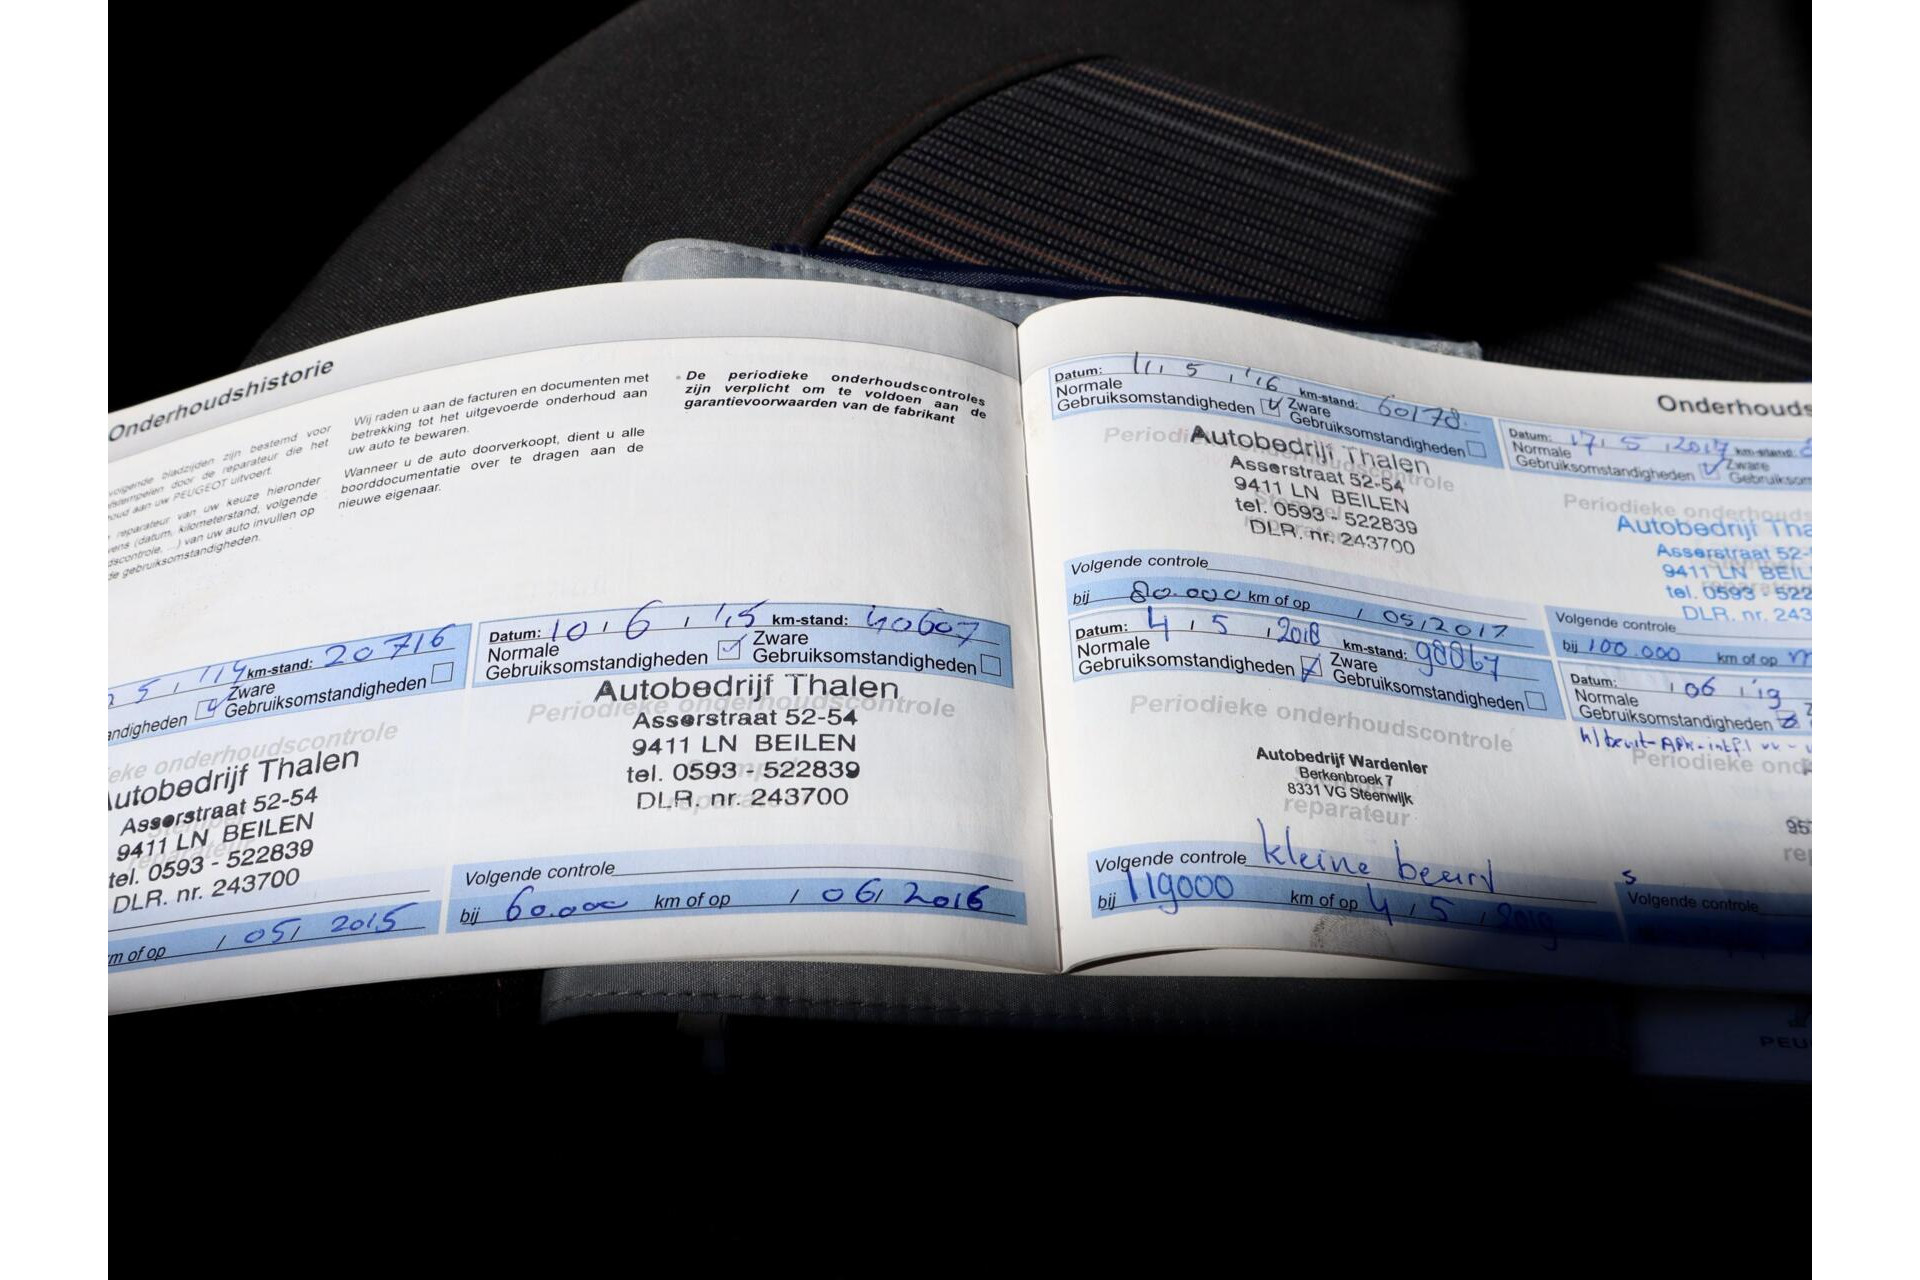 Onderhoudshistorie
volgende bladzijden zijn bestemd voor
door de reparateur die het
oud aan uw PEUGEOT uitvoert.
reparateur van uw keuze hieronder
(datum, kilometerstand, volgende
...) van uw auto invullen op
de gebruiksomstandigheden.
Wij raden u aan de facturen en documenten met
betrekking tot het uitgevoerde onderhoud aan
uw auto te bewaren.
Wanneer u de auto doorverkoopt, dient u alle
boorddocumentatie over te dragen aan de
nieuwe eigenaar.
De periodieke onderhoudscontroles
zijn verplicht om te voldoen aan de
garantievoorwaarden van de fabrikant
5 / '14 km-stand: 20716
andigheden Zware
Gebruiksomstandigheden
eke onderhoudscontrole
Autobedrijf Thalen
Asserstraat 52-54
9411 LN BEILEN
tel. 0593 - 522839
DLR. nr. 243700
m of op / 05 / 2015
Datum: 10 / 6 / '15 km-stand: 40607
Normale Zware
Gebruiksomstandigheden Gebruiksomstandigheden
Periodieke onderhoudscontrole
Autobedrijf Thalen
Asserstraat 52-54
9411 LN BEILEN
tel. 0593 - 522839
DLR. nr. 243700
reparateur
Volgende controle
bij 60.000 km of op / 06 / 2016
Datum: 11 / 5 / '16 km-stand: 60178
Normale Zware
Gebruiksomstandigheden Gebruiksomstandigheden
Autobedrijf Thalen
Asserstraat 52-54
9411 LN BEILEN
tel. 0593 - 522839
DLR. nr. 243700
Volgende controle
bij 80.000 km of op / 05 / 2017
Datum: 4 / 5 / 2018 km-stand: 98867
Normale Zware
Gebruiksomstandigheden Gebruiksomstandigheden
Periodieke onderhoudscontrole
Autobedrijf Wardenier
Berkenbroek 7
8331 VG Steenwijk
reparateur
Volgende controle kleine beurt
bij 119000 km of op 4 / 5 / 2019
Onderhouds
Datum: 17 / 5 / 2017 km-stand:
Normale Zware
Gebruiksomstandigheden Gebruiksom
Periodieke onderhouds
Autobedrijf Tha
Asserstraat 52-
9411 LN BEIL
tel. 0593 - 522
DLR. nr. 243
Volgende controle
bij 100.000 km of op
Datum: / 06 / '19
Normale
Gebruiksomstandigheden
Periodieke ond
95
rep
Volgende controle
PEU